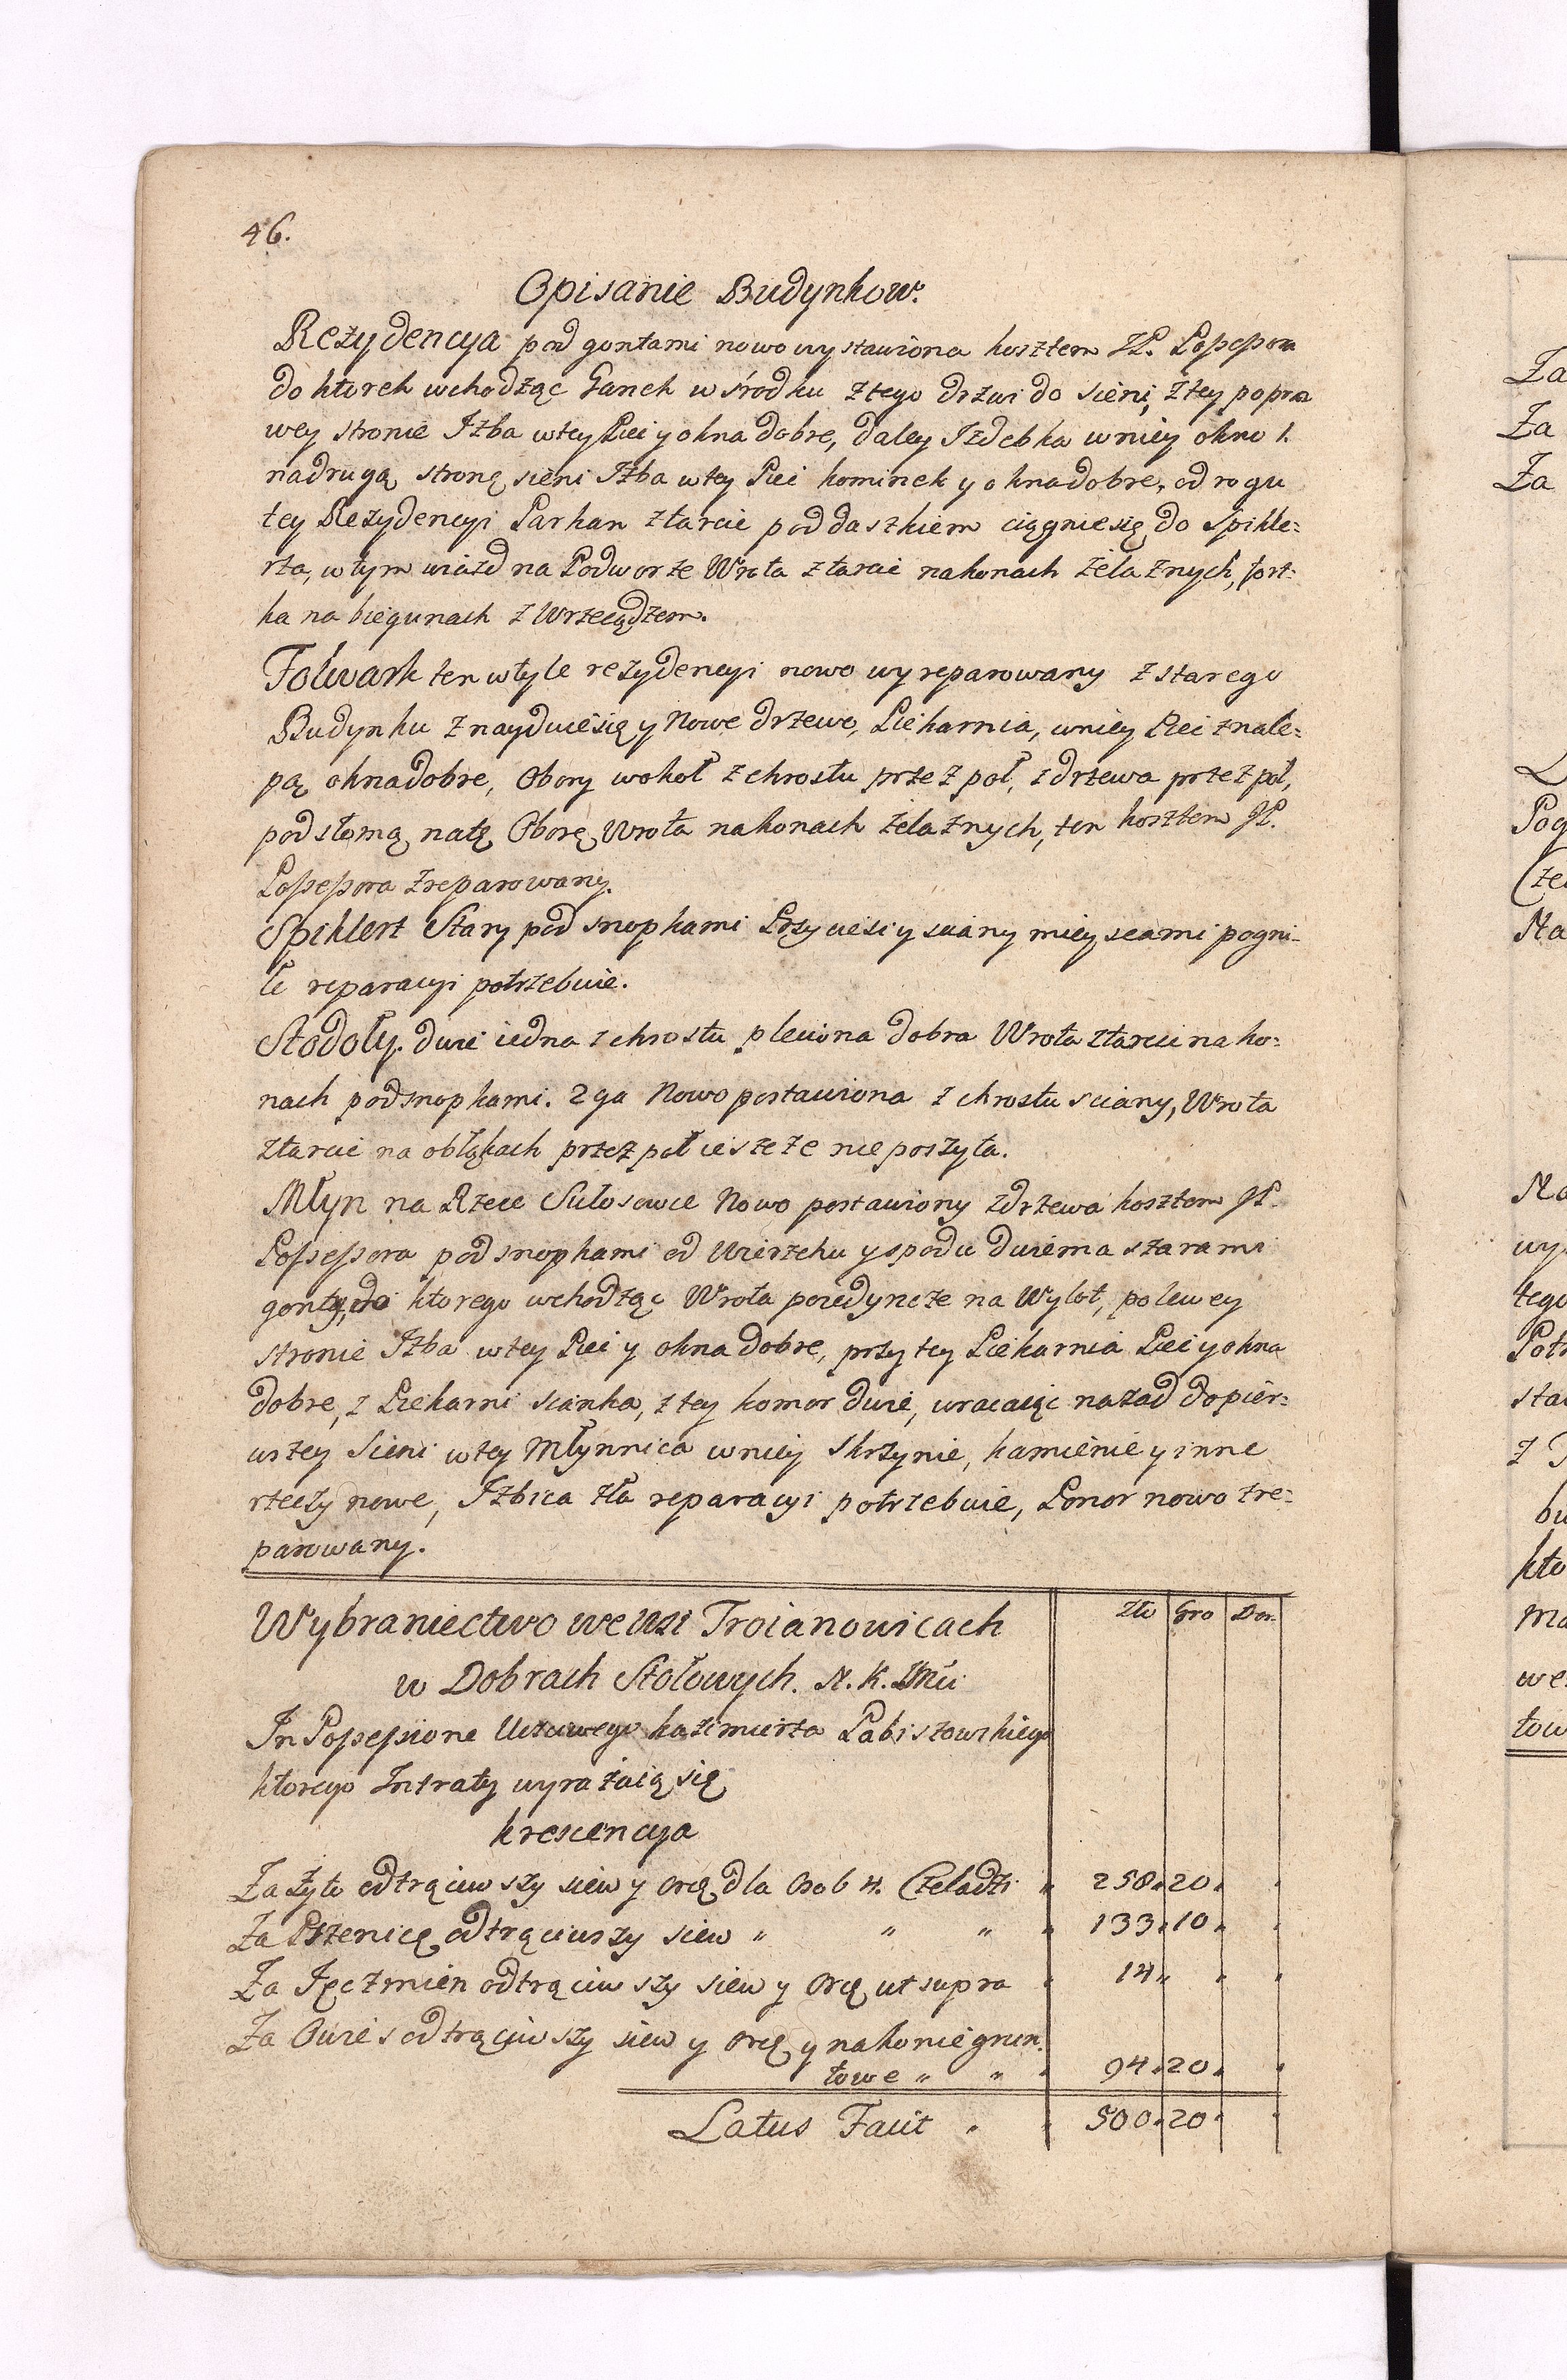 46.
Opisanie Budynkow.
Rezydencya pod gontami nowo wystawiona kosztem JP. Possessora
do ktorek wchodząc Ganek w środku z tego drzwi do sieni, z tey popra
wey stronie Izba w tey Piei y okna dobre, daley Izdebka w niey okno 1.
na drugą stronę sieni Izba w tey Piei kominek y okna dobre, od rogu
tey Rezydencyi Parkan z tarcic pod daszkiem ciągnie się do Spikle:
rza, w tym wiazd na Podworze Wrota z tarcic na konach żelaznych, fort:
ka na biegunach z Wrzeciądzem.
Folwark ten w tyle rezydencyi nowo wyreparowany z starego
Budynku znayduie się y Nowe drzewo, Piekarnia, w niey Piei z nale:
pą okna dobre, Obory wokoł z chrostu przez poł, z drzewa przez poł,
pod słomą na tę Oborę Wrota na konach żelaznych, ten kosztem JP.
Possessora zreparowany.
Spiklerz Stary pod snopkami Przyciesi y sciany mieyscami pogni-
łe reparacyi potrzebuie.
Stodoły. dwie iedna z chrostu pleciona dobra Wrota z tarcic na ko:
nach pod snopkami. 2ga Nowo postawiona z chrostu sciany, Wrota
z tarcic na obłąkach przez poł ieszcze nie poszyta.
Młyn na Rzece Sułosowce Nowo postawiony z drzewa kosztem JP.
Possessora pod snopkami od Wierzchu y spodu dwiema szarami
gonty, do ktorego wchodząc Wrota poiedyncze na Wylot, po lewey
stronie Izba w tey Piei y okna dobre, przy tey Piekarnia Piei y okna
dobre, z Piekarni scianka, z tey komor dwie, wracaiąc nazad do pier:
wszey Sieni w tey Młynnica w niey Skrzynie, kamienie y inne
rzeczy nowe, Izbica zła reparacyi potrzebuie, Ponor nowo zre:
parowany.
Wybraniectwo we Wsi Troianowicach Zło Gro Den.
w Dobrach Stołowych. N. K. JMci
In Possessione Uczciwego Kazimierza Pabiszowskiego
ktorego Intraty wyrażaią się
Krescencya
Za Żyto odtrąciwszy siew y Ord. dla Osob 4. Czeladzi „ 258 „ 20 „ „
Za Pszenicę odtrąciwszy siew „ „ „ „ 133 „ 10 „ „
Za Jęczmien odtrąciwszy siew y Ord. ut supra „ 14 „ „ „
Za Owies odtrąciwszy siew y Ord. y na konie grun:
towe „ „ „ 94 „ 20 „ „
Latus Facit „ „ 500 „ 20 „ „